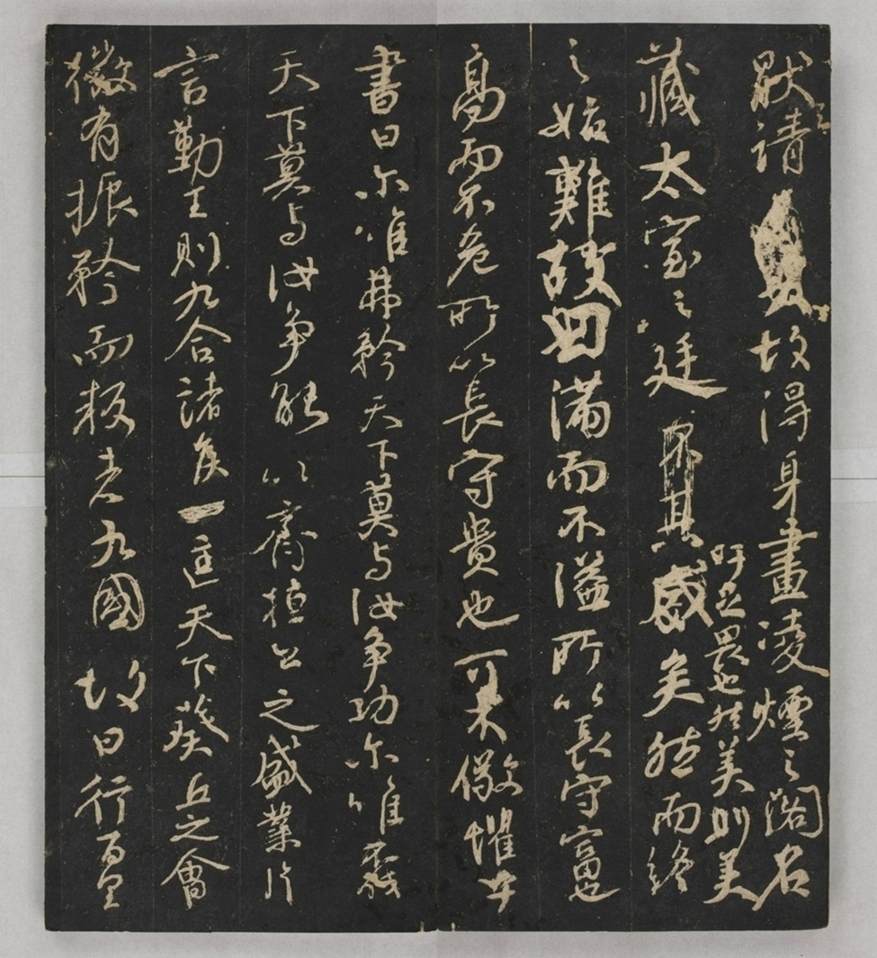 猒之請故得身畫凌煙之閣名
吁足畏也然美則美
藏太室之廷其盛矣然而終
之始難故曰滿而不溢所以長守富也
高而不危所以長守貴也可不儆懼乎
書曰尒唯弗矜天下莫与汝争功尒唯不伐
天下莫与汝争能以齊桓公之盛業片
言勤王則九合諸侯一匡天下葵丘之會
微有振矜而叛者九國故曰行百里